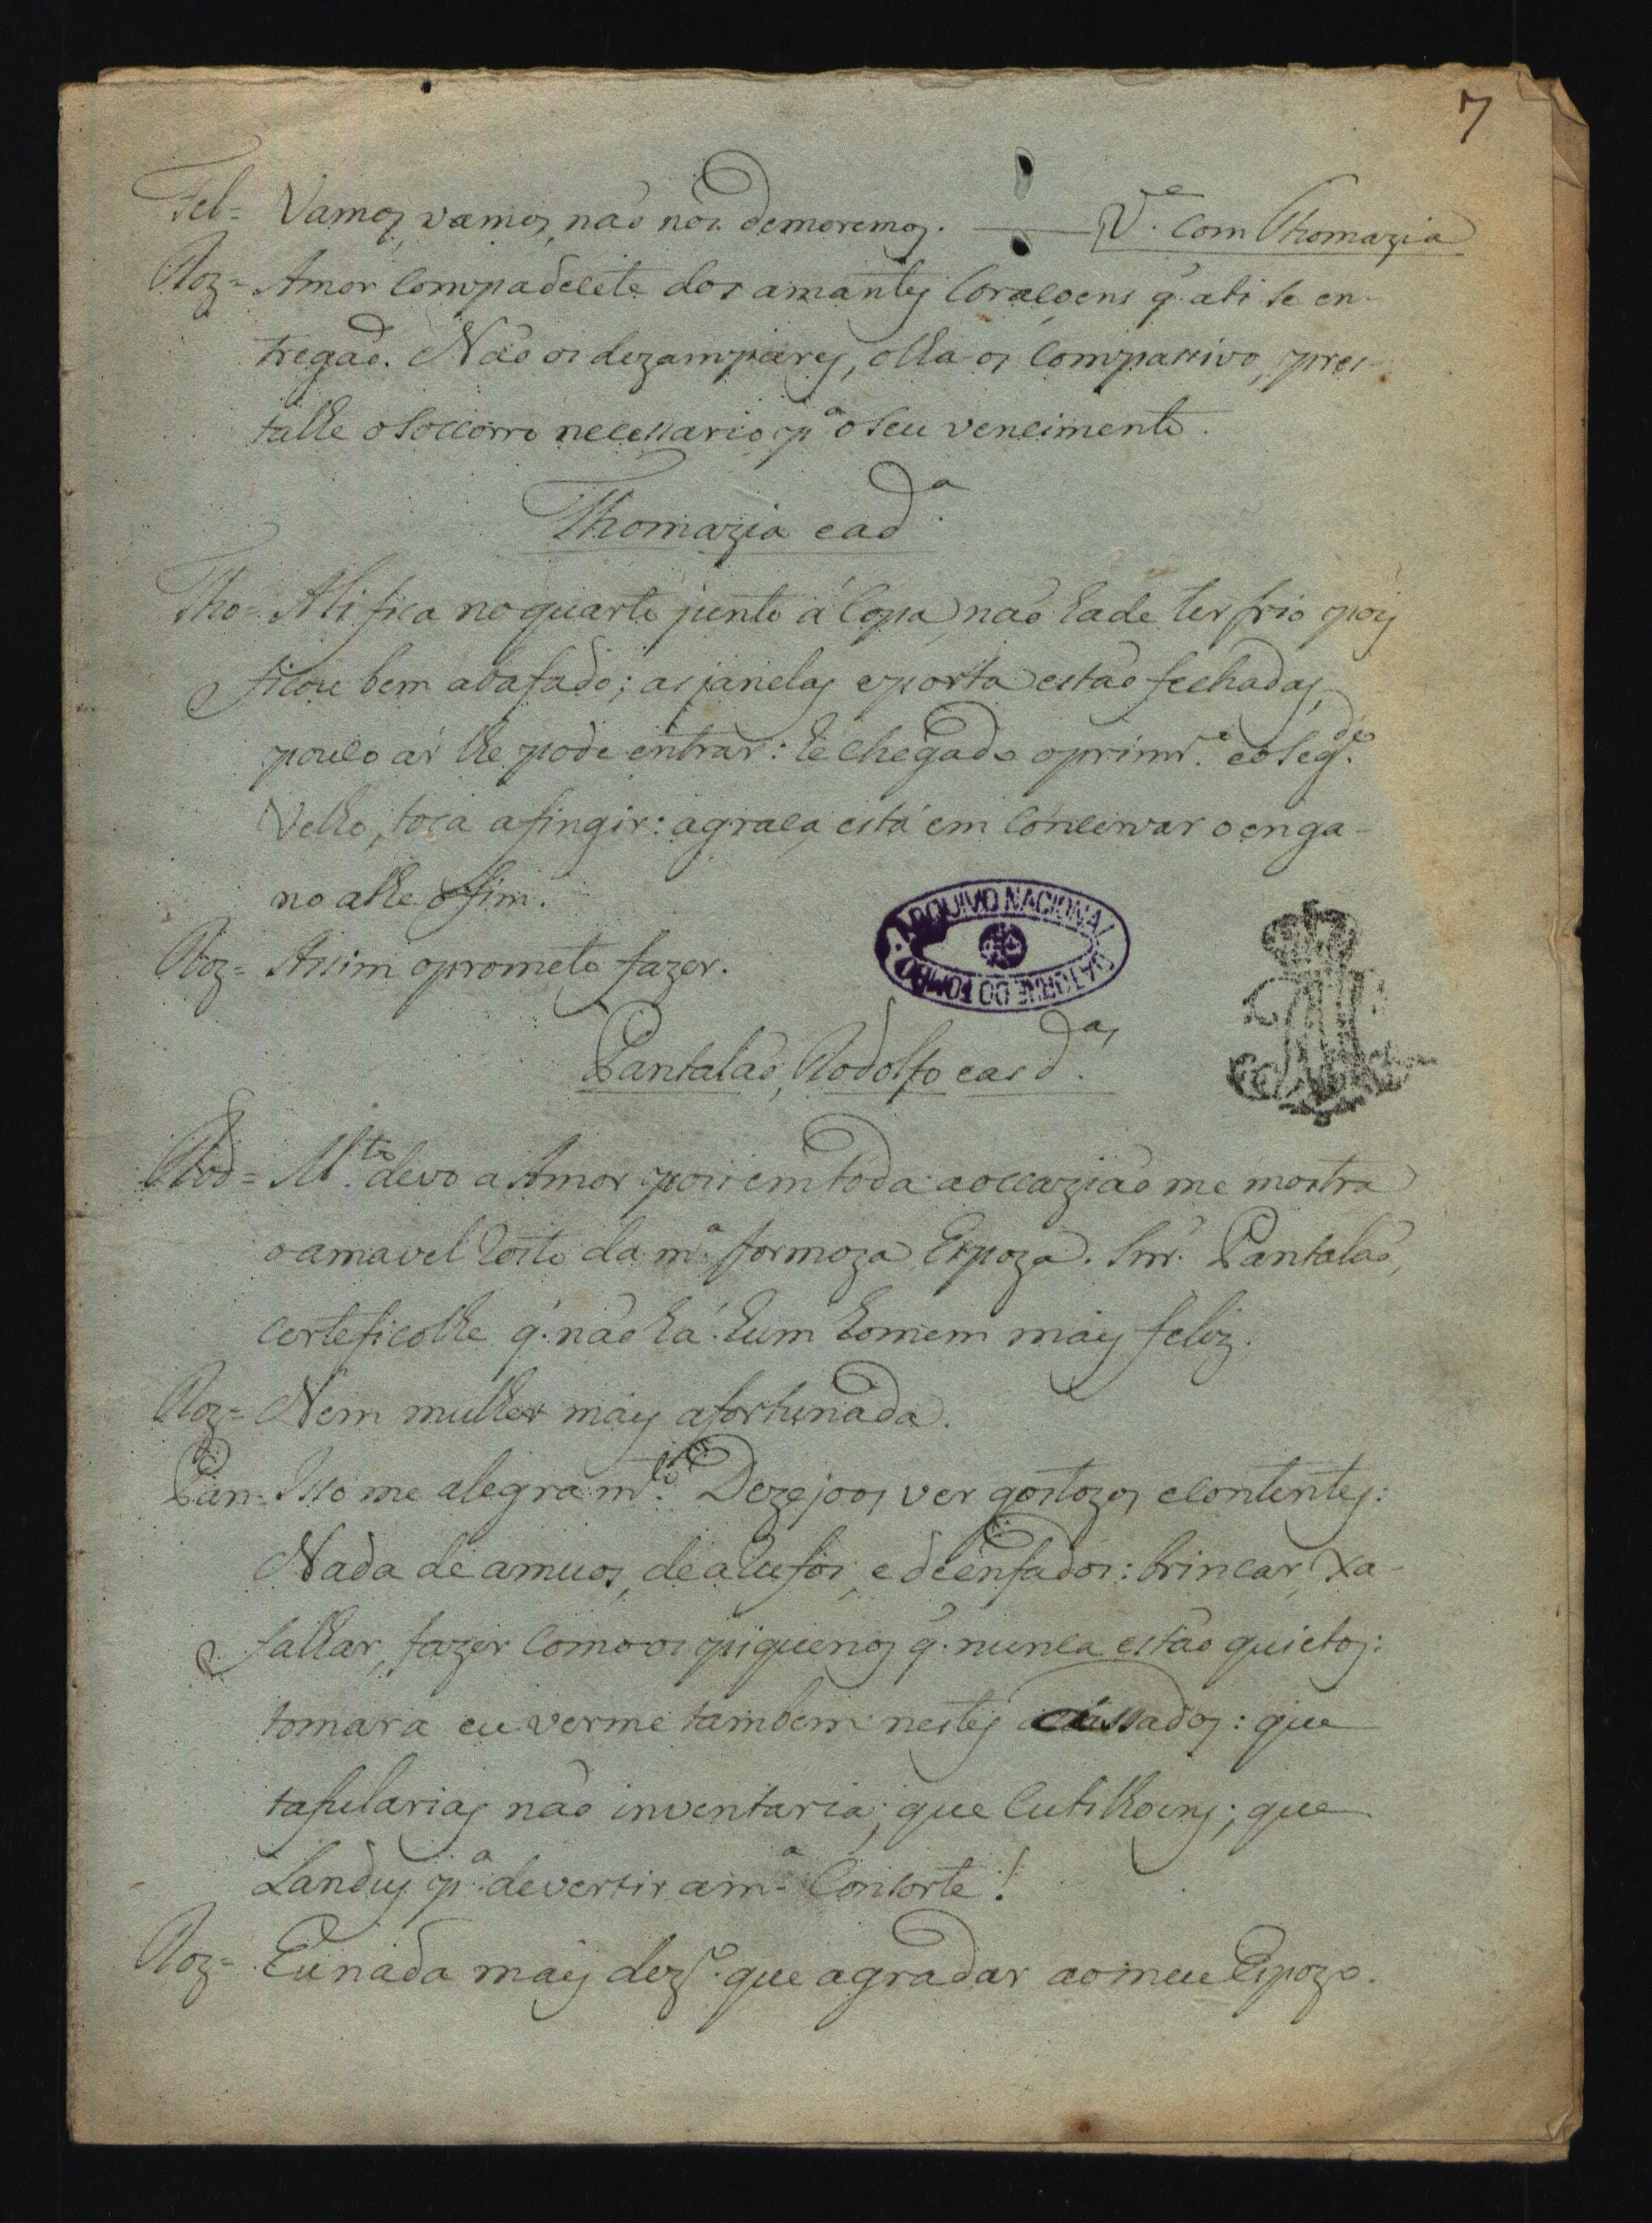 7
Fel= Vamos, vamos, não nos demoremos. V.e Com Thomazia
Roz= Amor compadecete dos amantes Coraçoens q̃. ati se en-
tregão. Não os dezampares, olha-os Compassivo, pres-
talhe o soccorro necessario p.a o seu vencimento.
Thomazia e a d.a
Tho= Ali fica no quarto junto á Copa, não hade ter frio pois
ficou bem abafado; as janelas e porta estão fechadas,
pouco ár lhe pode entrar: he chegado o primr.o e o seg.do
Velho, toca a fingir: a graça está em Concervar o enga-
no athe o fim.
Roz= Assim o prometo fazer.
ARQUIVO NACIONAL DA TORRE DO TOMBO
Pantalão, Rodolfo e as d.as
Rod= M.to devo a Amor pois em toda a occazião me mostra
o amavel rosto da m.a formoza Espoza. Snr. Pantalão,
certeficolhe q̃. não há hum homem mais feliz.
Roz= Nem mulher mais afortunada.
Pan= Isso me alegra m.to Dezejo os ver gostozos e contentes:
Nada de amuos, de arufos, e de enfados: brincar, xa-
falhar, fazer como os piquenos q̃. nunca estão quietos:
tomara eu verme tambem nestes assados: que
tafularias não inventaria; que Cutilhoens; que
Landus p.a devertir a m.a Consorte!
Roz= Eu nada mais dez.o que agradar ao meu Espozo.